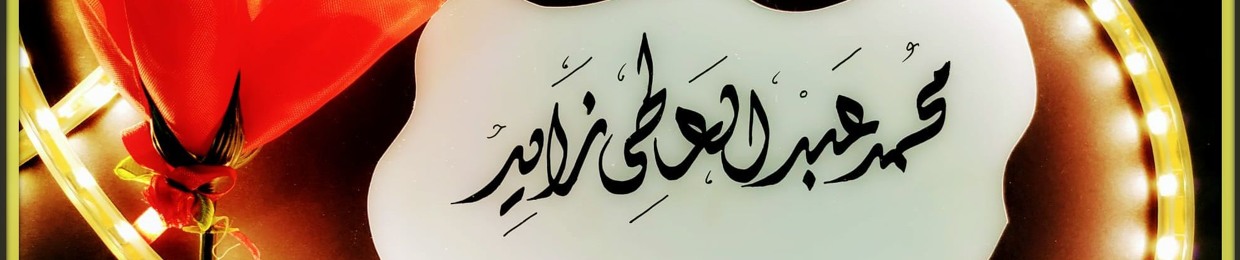 محمد عبد العاطي زايد